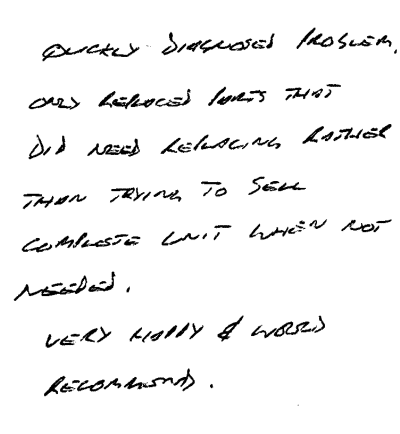 QUICKLY DIAGNOSED PROBLEM,
ONLY REPLACED PARTS THAT
DID NEED REPLACING RATHER
THAN TRYING TO SELL
COMPLETE UNIT WHEN NOT
NEEDED.
VERY HAPPY & WOULD
RECOMMEND.